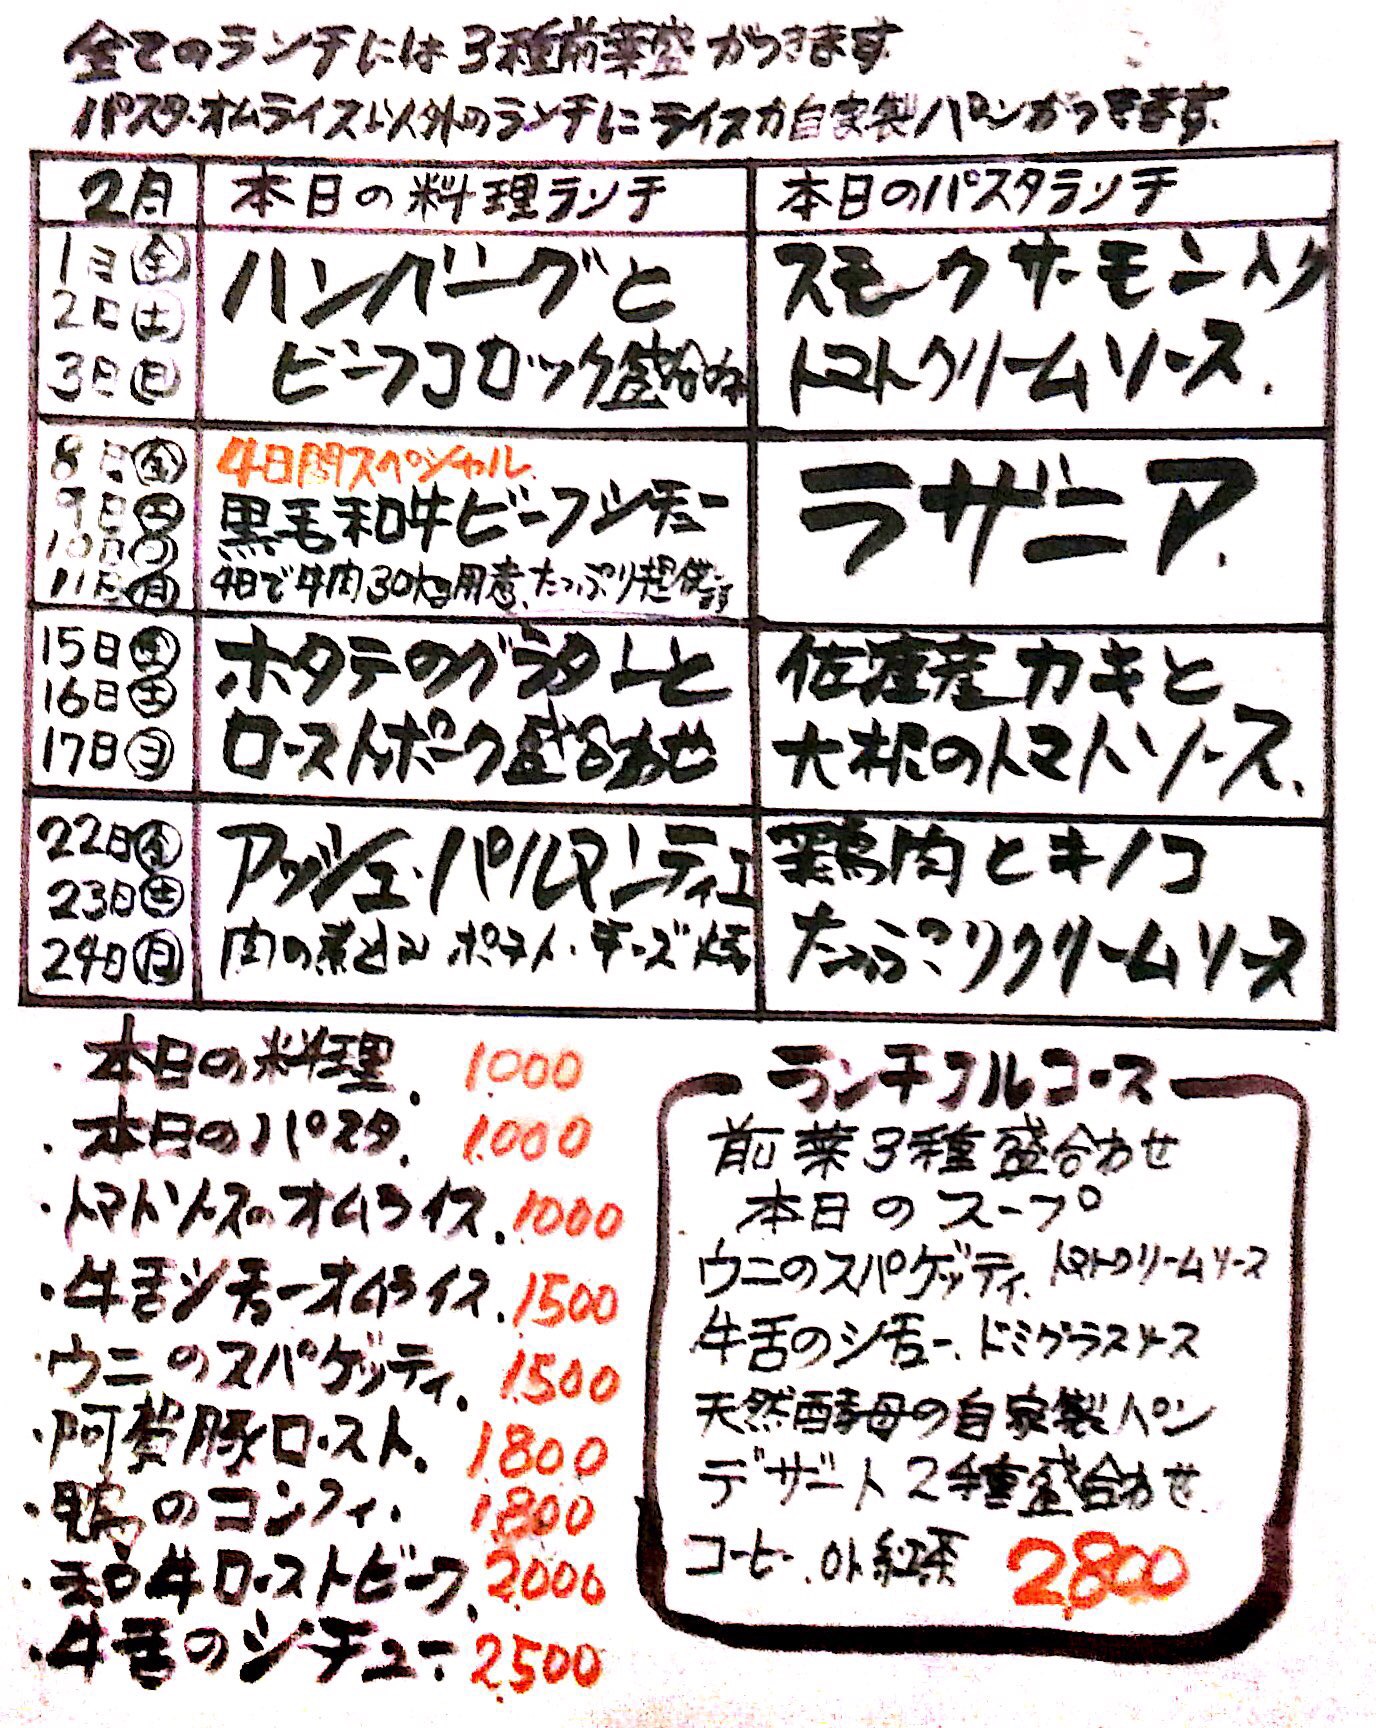 全てのランチには3種前菜盛がつきます
パスタ・オムライス以外のランチにライスか自家製パンがつきます.
2月 本日の料理ランチ 本日のパスタランチ
1日㊎
2日㊏
3日㊐
ハンバーグと
ビーフコロッケ盛合わせ
スモークサーモン入り
トマトクリームソース.
8日㊎
9日㊏
10日㊐
11日㊊
4日間スペシャル.
黒毛和牛ビーフシチュー
4日で牛肉30kg用意.たっぷり提供します
ラザニア.
15日㊎
16日㊏
17日㊐
ホタテのグラタンと
ローストポーク盛合わせ
佐渡産カキと
大根のトマトソース.
22日㊎
23日㊏
24日㊐
アッシェ・パルマンティエ
肉の煮込み ポテト・チーズ焼
鶏肉とキノコ
たっぷりクリームソース
・本日の料理. 1000
・本日のパスタ. 1000
・トマトソースのオムライス. 1000
・牛舌シチューオムライス. 1500
・ウニのスパゲッティ. 1500
・阿賀豚ロースト. 1800
・鴨のコンフィ. 1800
・和牛ローストビーフ. 2000
・牛舌のシチュー. 2500
ランチフルコース
前菜3種盛合わせ
本日のスープ
ウニのスパゲッティ. トマトクリームソース
牛舌のシチュー. ドミグラスソース
天然酵母の自家製パン
デザート2種盛合わせ.
コーヒー.or紅茶 2800